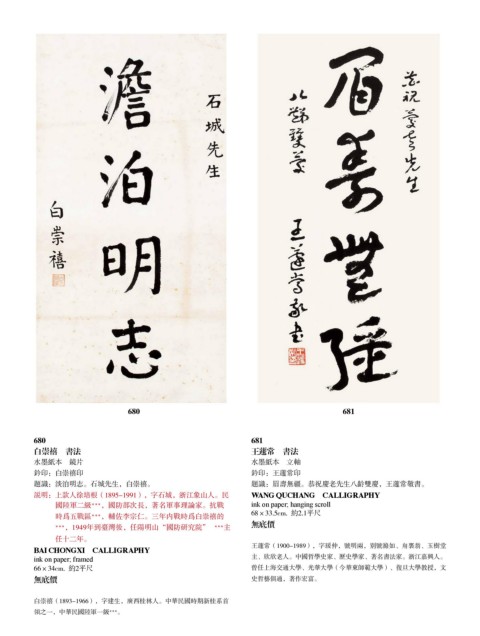 澹泊明志
石城先生
白崇禧
眉壽無疆
恭祝慶老先生
八龄雙慶
王蘧常敬書
680
681
680
白崇禧 書法
水墨紙本 鏡片
鈐印：白崇禧印
題識：淡泊明志。石城先生，白崇禧。
說明：上款人徐培根（1895-1991），字石城，浙江象山人。民
國陸軍二級***，國防部次長，著名軍事理論家。抗戰
時爲五戰區***，輔佐李宗仁。三年內戰時爲白崇禧的
***，1949年到臺灣後，任陽明山“國防研究院” ***主
任十二年。
BAI CHONGXI CALLIGRAPHY
ink on paper; framed
66 x 34cm. 約2平尺
無底價
白崇禧（1893-1966），字建生，廣西桂林人。中華民國時期新桂系首
領之一，中華民國陸軍一級***。
681
王蘧常 書法
水墨紙本 立軸
鈐印：王蘧常印
題識：眉壽無疆。恭祝慶老先生八齡雙慶，王蘧常敬書。
WANG QUCHANG CALLIGRAPHY
ink on paper; hanging scroll
68 x 33.5cm. 約2.1平尺
無底價
王蘧常（1900-1989），字瑗仲，號明兩，別號滌如、角裏翁、玉樹堂
主、欣欣老人。中國哲學史家、歷史學家、著名書法家。浙江嘉興人。
曾任上海交通大學、光華大學（今華東師範大學）、復旦大學教授。文
史哲藝俱通，著作宏富。